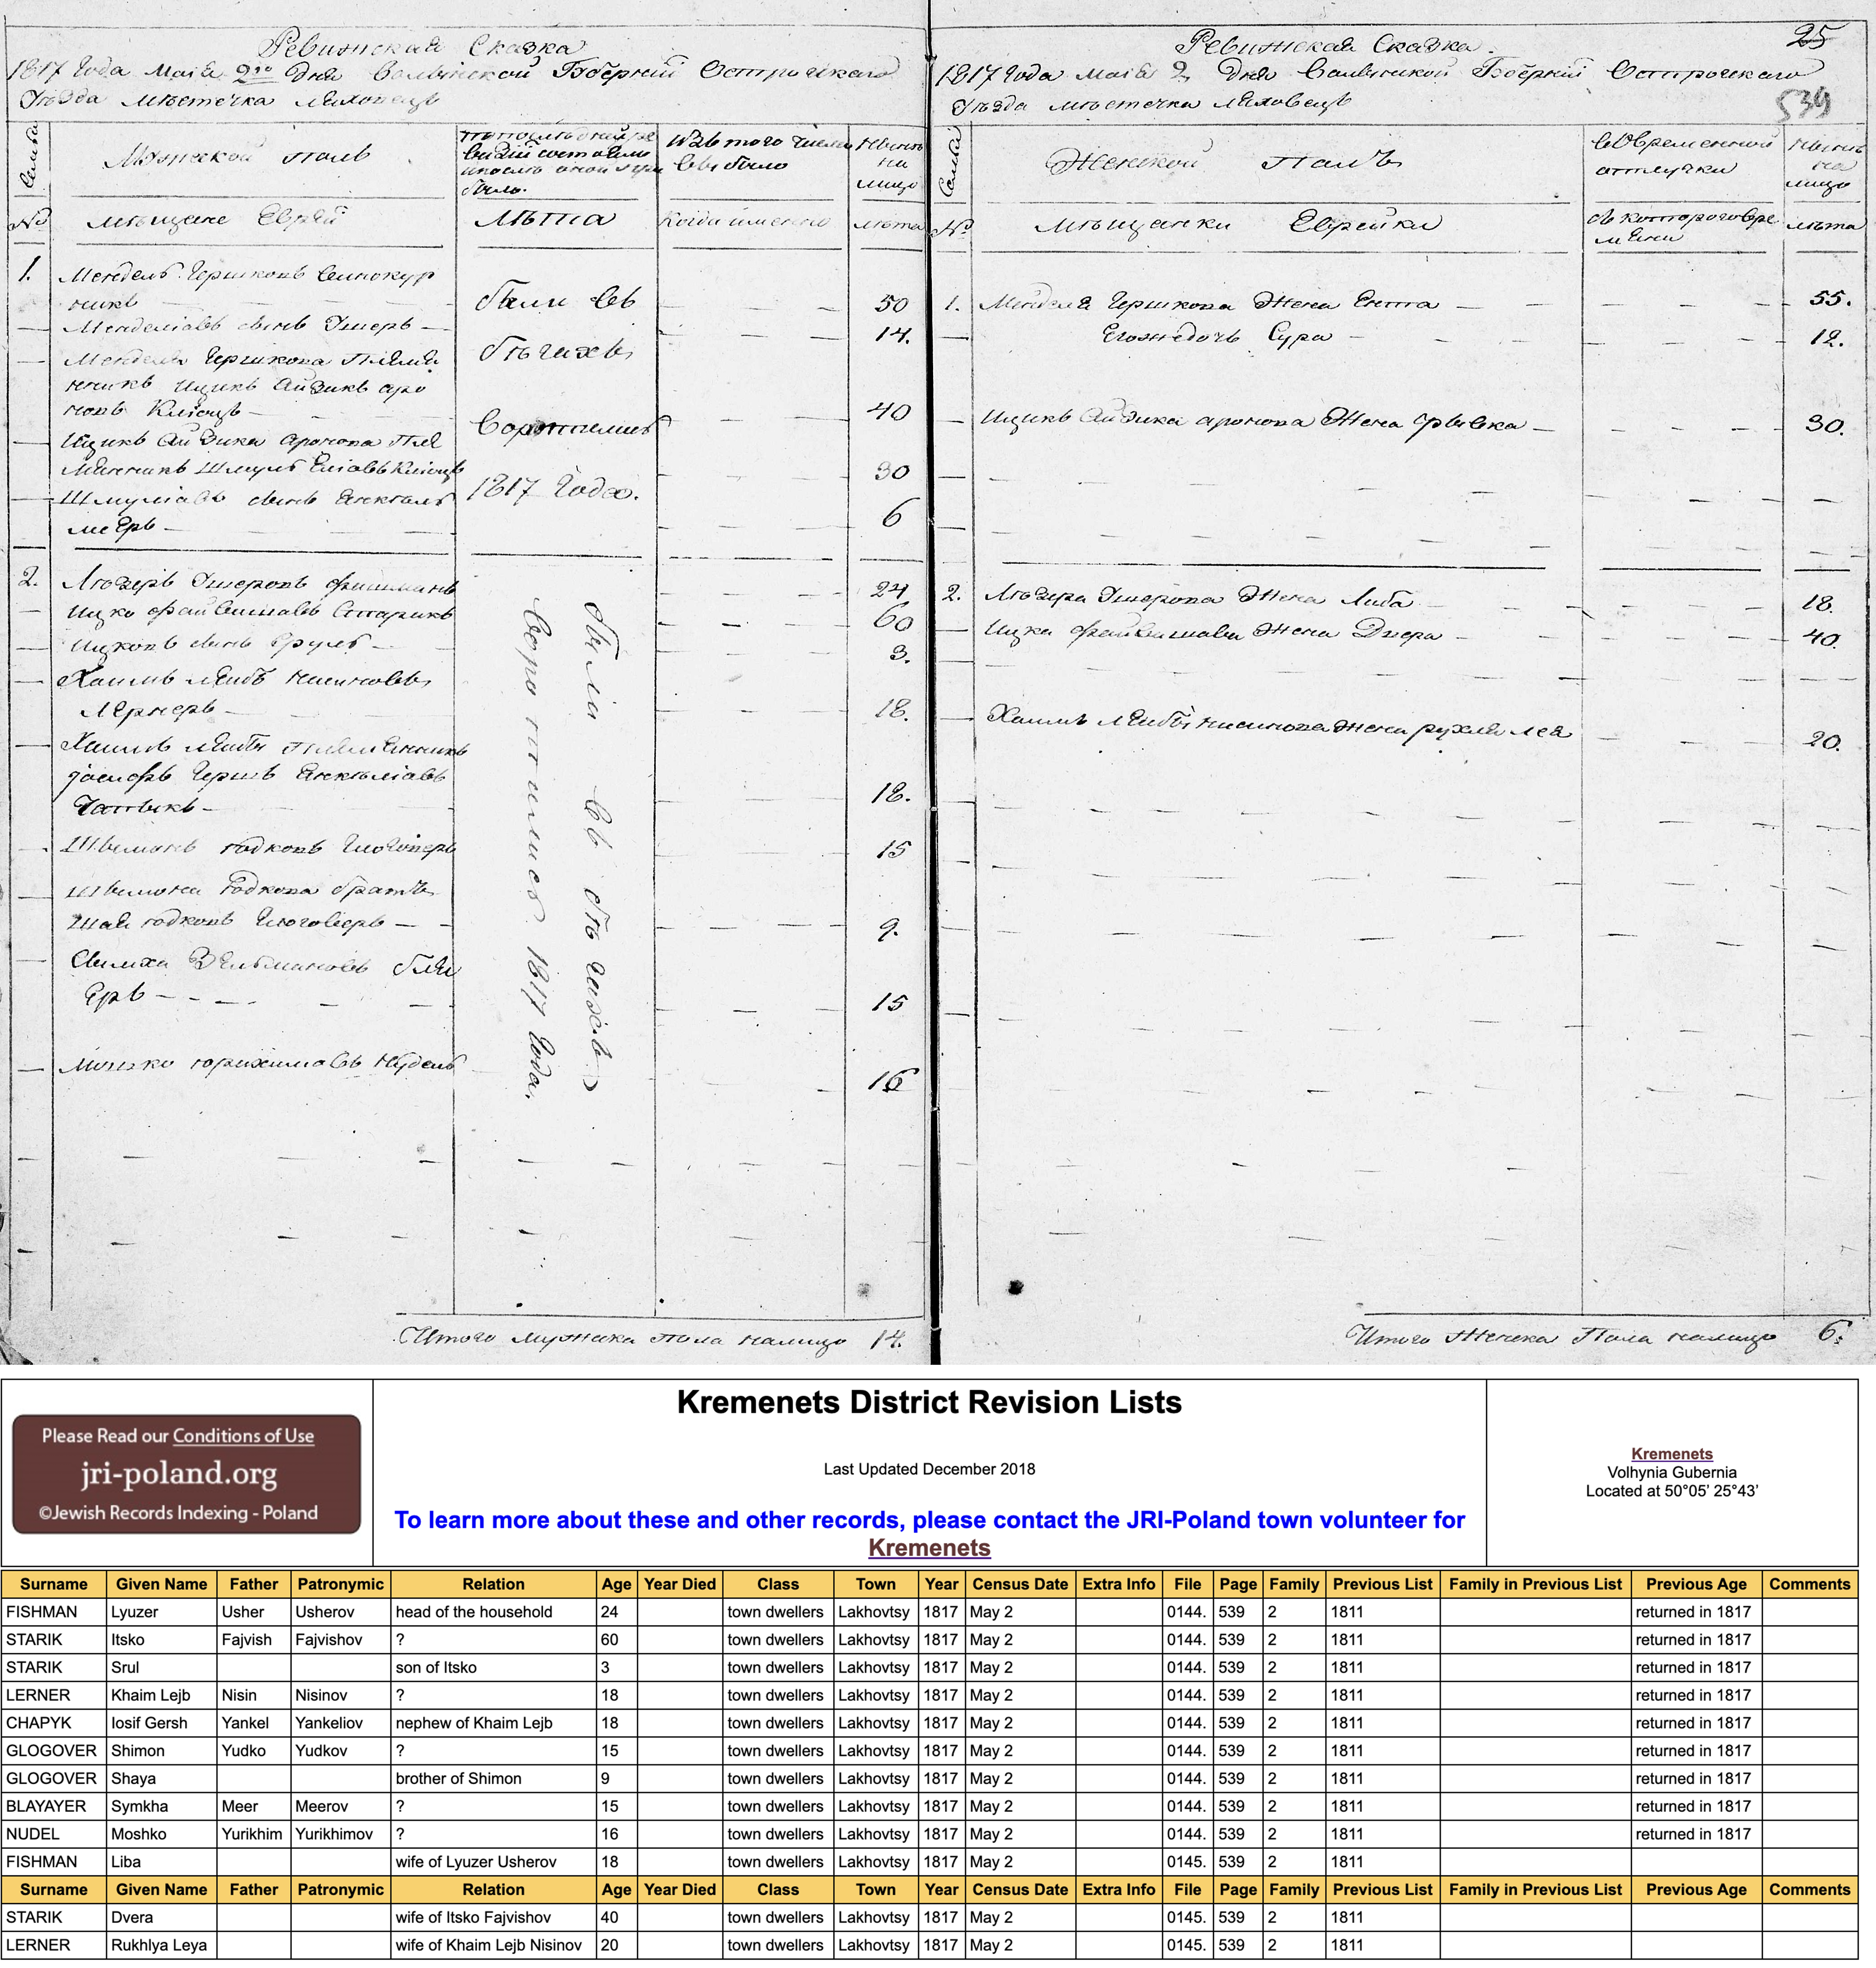 Ревижская Сказка
1817 года маія 2го дня Волынской Губерніи Острожскаго
Уѣзда мѣстечка Ляховецъ
Семьи
Мужской полъ
Изъ того числа
выбыло
Нынѣ
на
лицо
№
мѣщане Евреи
лѣта
Когда имянно
лѣта
1.
Мендель Гершковъ Винокур
никъ
50
Менделіовъ сынъ Ушеръ
14.
Мендель Гершкова племя
нникъ Ицикъ Айзикъ аро
новъ
40
Ицикъ Айзика аронова пле
мянникъ Шмуль
30
Шмуліовъ сынъ Янкель
мееръ
6
были въ
бѣгахъ
воротились
1817 Года.
2.
Люзеръ Ушеровъ фишманъ
24
Ицко файвишовъ Старикъ
60
Ицковъ сынъ Сруль
3.
Хаимъ лейбъ нисиновъ
Лернеръ
18.
Хаимъ лейбы племянникъ
Іосифъ Гершъ Янкеліовъ
Чапыкъ
18.
Шимонъ юдковъ Глоговеръ
15
Шимона юдкова братъ
Шая юдковъ Глоговеръ
9.
Симха
15
Мошко юрихимовъ Нудель
16
были въ бѣгахъ
воротились 1817 Года.
Итого мужска пола налицо 14.
Ревижская Сказка.
25
1817 года маія 2 дня Волынской Губерніи Острожскаго
Уѣзда мѣстечка Ляховецъ
539
Семьи
Женской полъ
во временной
отлучки
Нынѣ
на
лицо
№
мѣщанки Еврейки
съ котораго вре
мяни
лѣта
1. Менделя Гершкова жена Ента 55.
Егожъ дочь Сура 12.
Ицикъ Айзика аронова жена фривка 30.
2. Люзера Ушерова жена Либа 18.
Ицка файвишова жена Двера 40.
Хаимъ лейбы нисинова жена рухля лея 20.
Итого женска пола налицо 6.
Please Read our Conditions of Use
jri-poland.org
©Jewish Records Indexing - Poland
Kremenets District Revision Lists
Last Updated December 2018
To learn more about these and other records, please contact the JRI-Poland town volunteer for
Kremenets
Kremenets
Volhynia Gubernia
Located at 50°05' 25°43'
Surname Given Name Father Patronymic Relation Age Year Died Class Town Year Census Date Extra Info File Page Family Previous List Family in Previous List Previous Age Comments
FISHMAN Lyuzer Usher Usherov head of the household 24 town dwellers Lakhovtsy 1817 May 2 0144. 539 2 1811 returned in 1817
STARIK Itsko Fajvish Fajvishov ? 60 town dwellers Lakhovtsy 1817 May 2 0144. 539 2 1811 returned in 1817
STARIK Srul son of Itsko 3 town dwellers Lakhovtsy 1817 May 2 0144. 539 2 1811 returned in 1817
LERNER Khaim Lejb Nisin Nisinov ? 18 town dwellers Lakhovtsy 1817 May 2 0144. 539 2 1811 returned in 1817
CHAPYK Iosif Gersh Yankel Yankeliov nephew of Khaim Lejb 18 town dwellers Lakhovtsy 1817 May 2 0144. 539 2 1811 returned in 1817
GLOGOVER Shimon Yudko Yudkov ? 15 town dwellers Lakhovtsy 1817 May 2 0144. 539 2 1811 returned in 1817
GLOGOVER Shaya brother of Shimon 9 town dwellers Lakhovtsy 1817 May 2 0144. 539 2 1811 returned in 1817
BLAYAYER Symkha Meer Meerov ? 15 town dwellers Lakhovtsy 1817 May 2 0144. 539 2 1811 returned in 1817
NUDEL Moshko Yurikhim Yurikhimov ? 16 town dwellers Lakhovtsy 1817 May 2 0144. 539 2 1811 returned in 1817
FISHMAN Liba wife of Lyuzer Usherov 18 town dwellers Lakhovtsy 1817 May 2 0145. 539 2 1811
Surname Given Name Father Patronymic Relation Age Year Died Class Town Year Census Date Extra Info File Page Family Previous List Family in Previous List Previous Age Comments
STARIK Dvera wife of Itsko Fajvishov 40 town dwellers Lakhovtsy 1817 May 2 0145. 539 2 1811
LERNER Rukhlya Leya wife of Khaim Lejb Nisinov 20 town dwellers Lakhovtsy 1817 May 2 0145. 539 2 1811